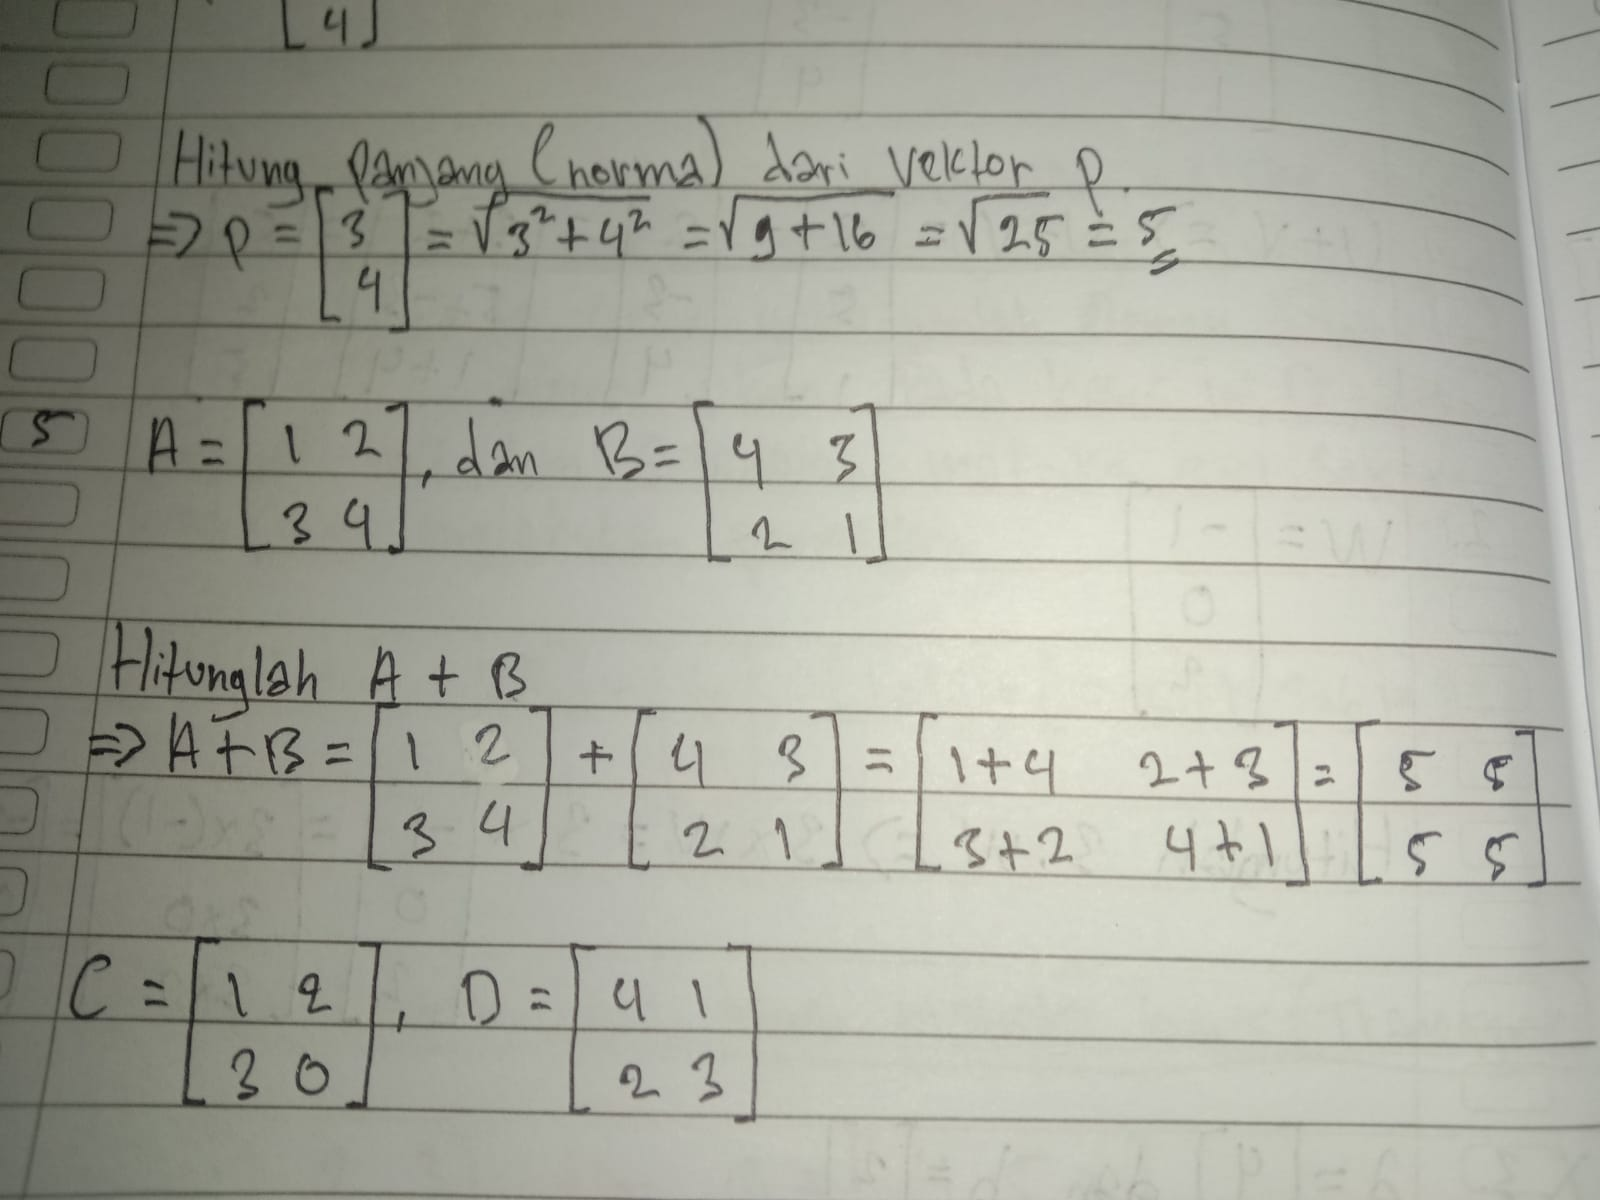 [4]
Hitung Panjang (norma) dari vektor p.
=> p = [3 4] = √3²+4² = √9+16 = √25 = 5
5 A = [1 2 3 4], dan B = [4 3 2 1]
Hitunglah A + B
=> A+B = [1 2 3 4] + [4 3 2 1] = [1+4 2+3 3+2 4+1] = [5 5 5 5]
C = [1 2 3 0], D = [4 1 2 3]